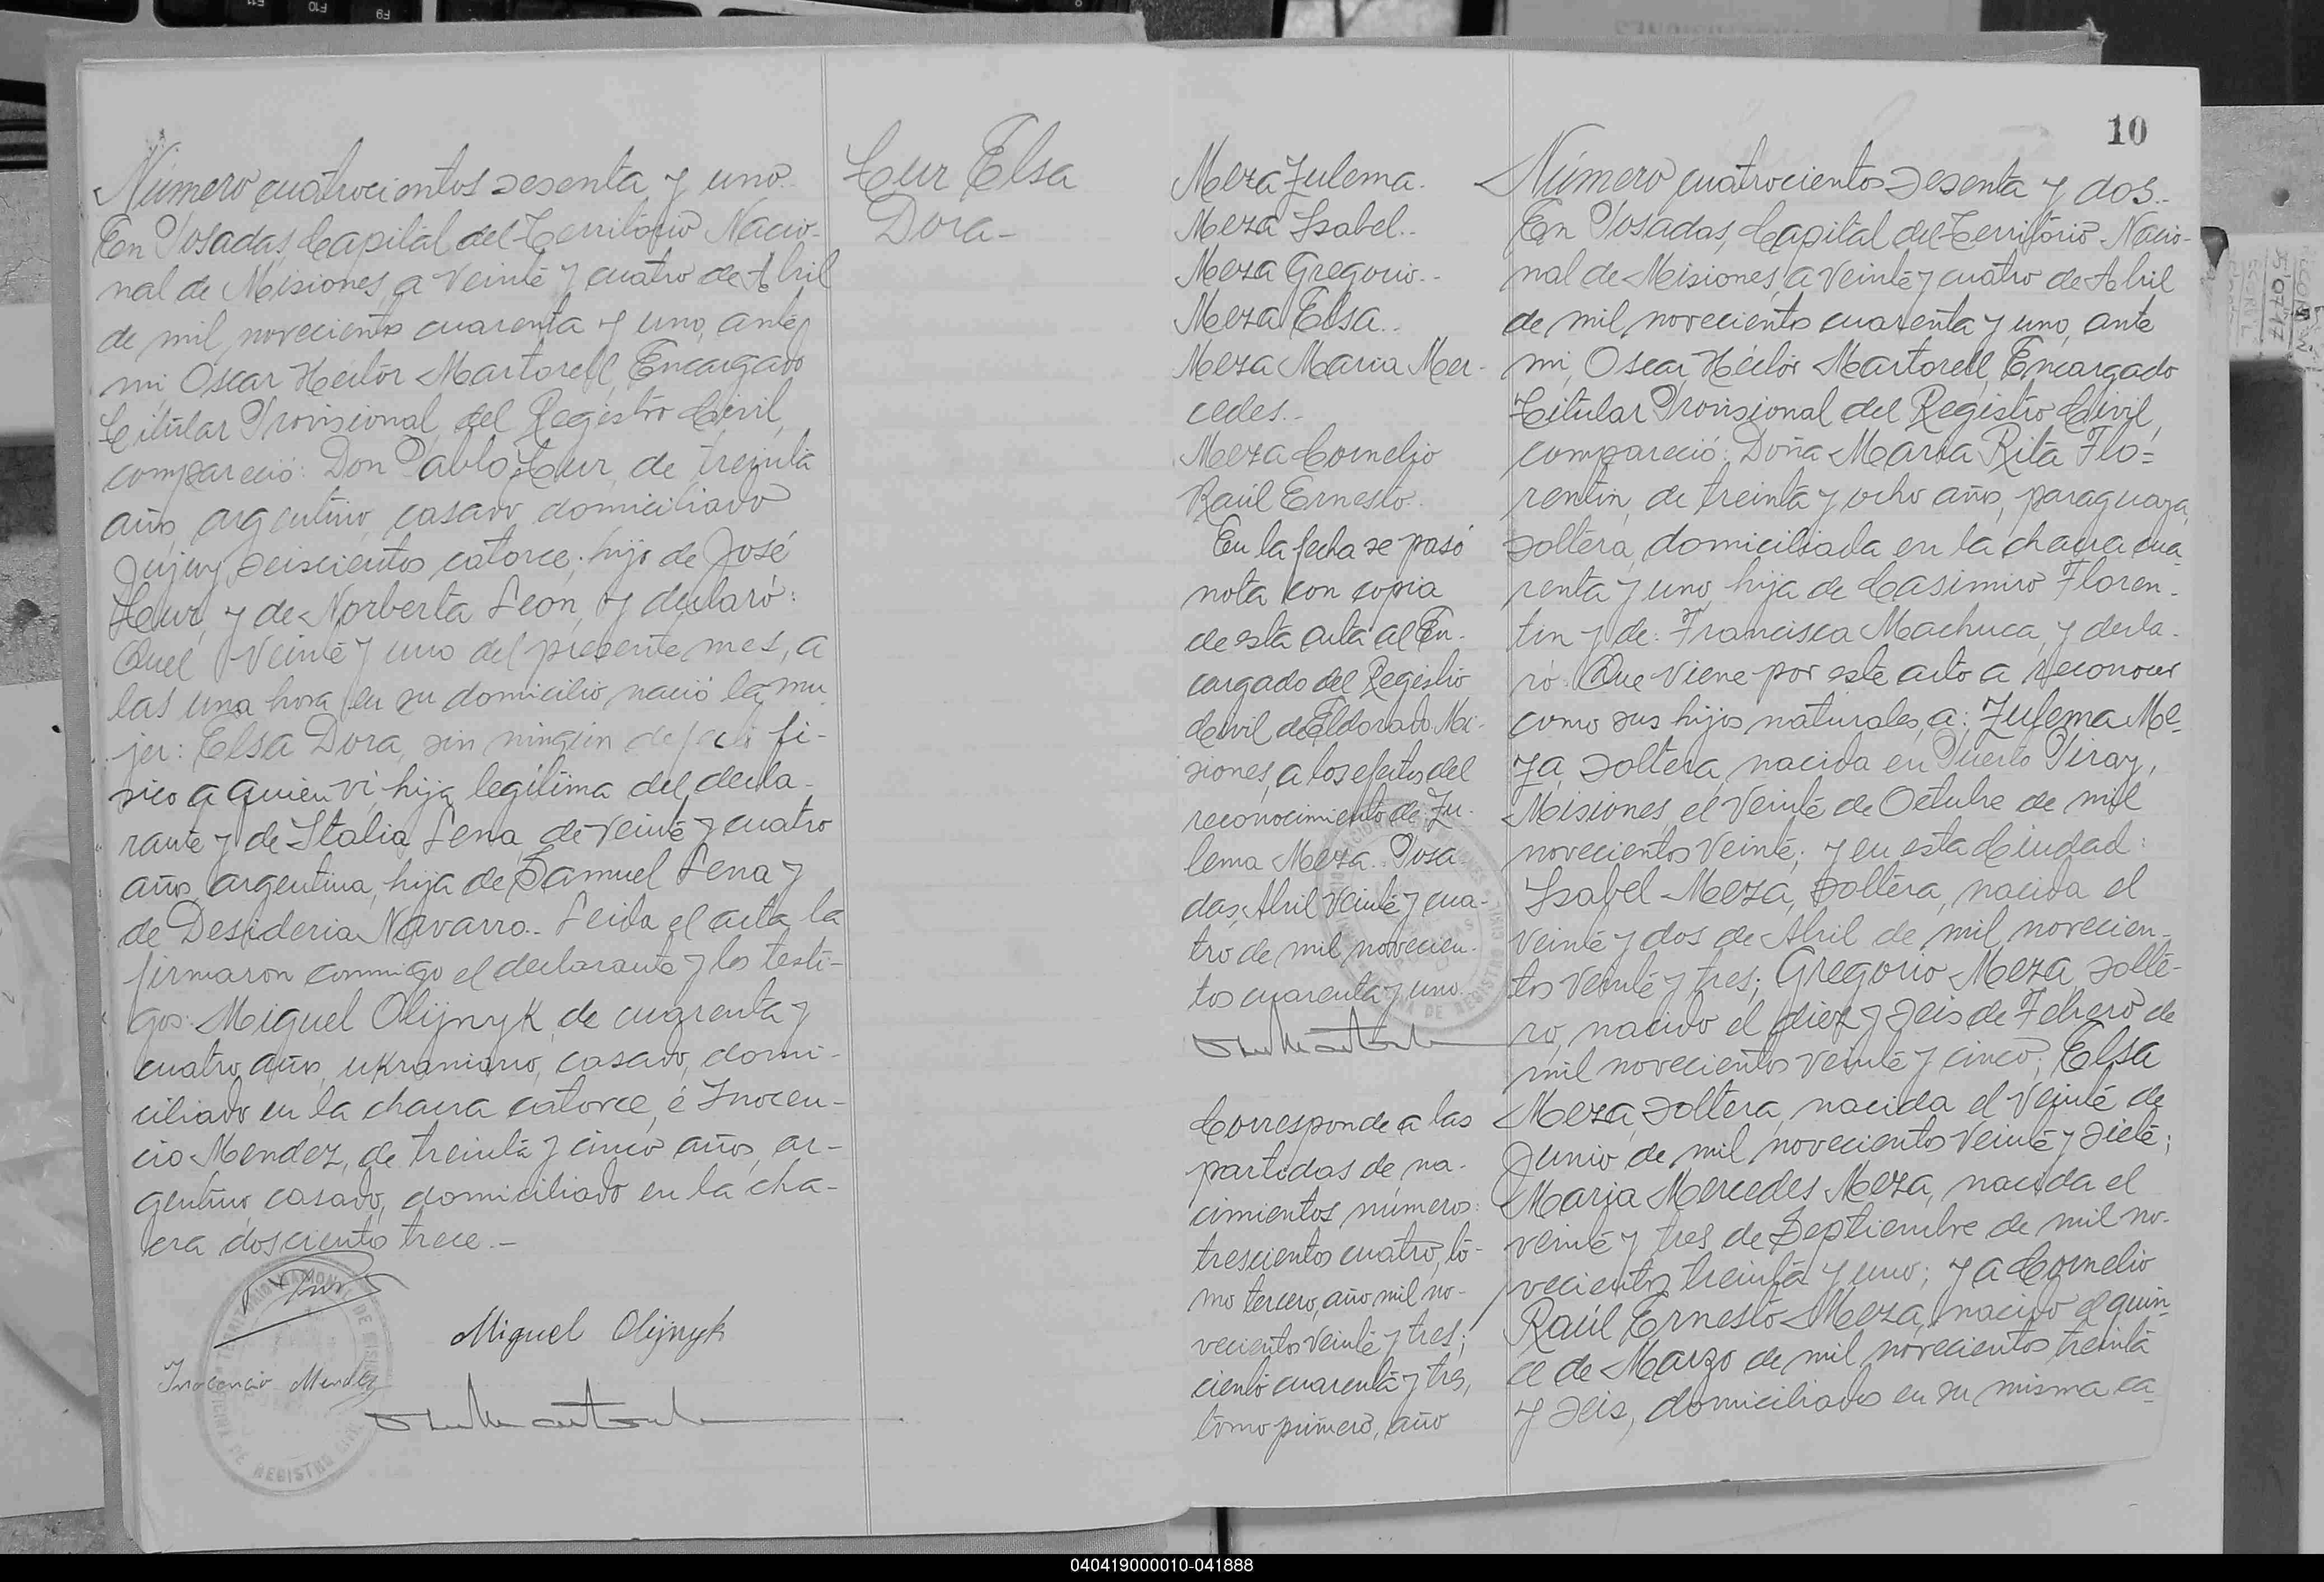 Número cuatrocientos sesenta y uno..
En Posadas, Capital del Territorio Nacio-
nal de Misiones, a veinte y cuatro de Abril
de mil novecientos cuarenta y uno, ante
mi, Oscar Hector Martorell, Encargado
Titular Provisional del Registro Civil,
compareció: Don Pablo Teur, de treinta
años, argentino, casado, domiciliado
Jujuy seiscientos catorce, hijo de José
Teur, y de Norberta Leon, y declaró:
Que el veinte y uno del presente mes, a
las una hora en su domicilio nació la mu-
jer: Elsa Dora, sin ningún defecto fi-
sico a quien vi, hija legítima del decla-
rante y de Italia Lena, de veinte y cuatro
años, argentina, hija de Samuel Lena y
de Desideria Navarro.. Leida el acta la
firmaron conmigo el declarante y los testi-
gos: Miguel Olijnyk, de cuarenta y
cuatro años, ukraniano, casado, domi-
ciliado en la chacra catorce, é Inocen-
cio Mendez, de treinta y cinco años, ar-
gentino, casado, domiciliado en la cha-
cra doscientos trece.-
Miguel Olijnyk
Inocencio Mendez
Teur Elsa
Dora-
Meza Zulema.
Meza Isabel..
Meza Gregorio..
Meza Elsa..
Meza Maria Mer-
cedes..
Meza Cornelio
Raúl Ernesto.
En la fecha se pasó
nota con copia
de esta acta al En-
cargado del Registro
Civil de Eldorado Mi-
siones, a los efectos del
reconocimiento de Zu-
lema Meza.. Posa-
das, Abril veinte y cua-
tro de mil novecien-
tos cuarenta y uno.
Corresponde a las
partidas de na-
cimientos, números:
trescientos cuatro, to-
mo tercero, año mil no-
vecientos veinte y tres;
ciento cuarenta y tres,
tomo primero, año
10
Número cuatrocientos sesenta y dos..
En Posadas, Capital del Territorio Nacio-
nal de Misiones, a veinte y cuatro de Abril
de mil novecientos cuarenta y uno, ante
mi, Oscar Héctor Martorell, Encargado
Titular Provisional del Registro Civil,
compareció: Doña Maria Rita Flo=
rentin, de treinta y ocho años, paraguaya,
soltera, domiciliada en la chacra cua-
renta y uno, hija de Casimiro Floren-
tin y de: Francisca Machuca, y decla-
ró: Que viene por este acto a reconocer
como sus hijos naturales, a: Zulema Me-
za, soltera, nacida en Puerto Piray,
Misiones, el veinte de Octubre de mil
novecientos veinte; y en esta Ciudad:
Isabel Meza, soltera, nacida el
veinte y dos de Abril de mil novecien-
tos veinte y tres; Gregorio Meza, solte-
ro, nacido el diez y seis de Febrero de
mil novecientos veinte y cinco; Elsa
Meza, soltera, nacida el veinte de
Junio de mil novecientos veinte y siete;
Maria Mercedes Meza, nacida el
veinte y tres de Septiembre de mil no-
vecientos treinta y uno; y a Cornelio
Raúl Ernesto Meza, nacido el quin-
ce de Marzo de mil novecientos treinta
y seis, domiciliados en su misma ca-
040419000010-041888